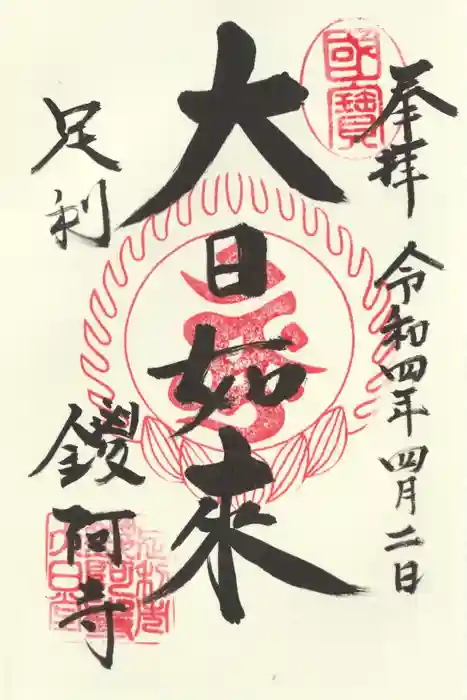 奉拝 令和四年四月二日
國寶
大日如来
足利 鑁阿寺